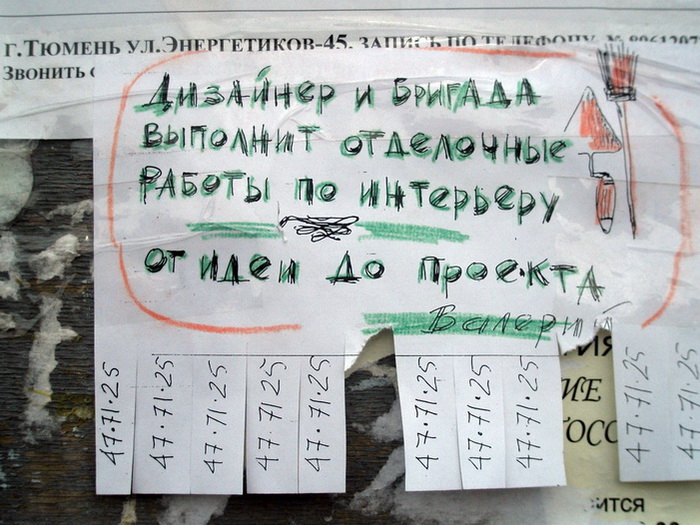 г.Тюмень ул.Энергетиков-45. запись по телефону.
Звонить с
Дизайнер и Бригада
выполнит отделочные
работы по интерьеру
от идеи до проекта
Валерий
47.71.25
47.71.25
47.71.25
47.71.25
47.71.25
47.71.25
47.71.25
47.71.25
47.71.25
47.71.25
ИЕ